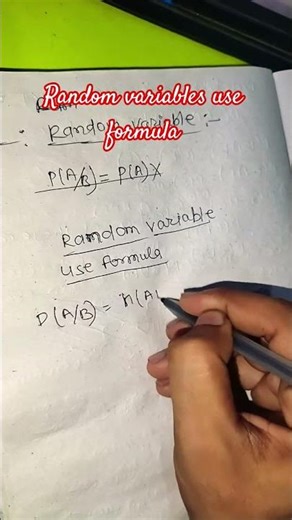 Random variables use
formula
-: Random variable :-
P(A/B) = P(A) X
Random variable
use formula
P(A/B) = n(A